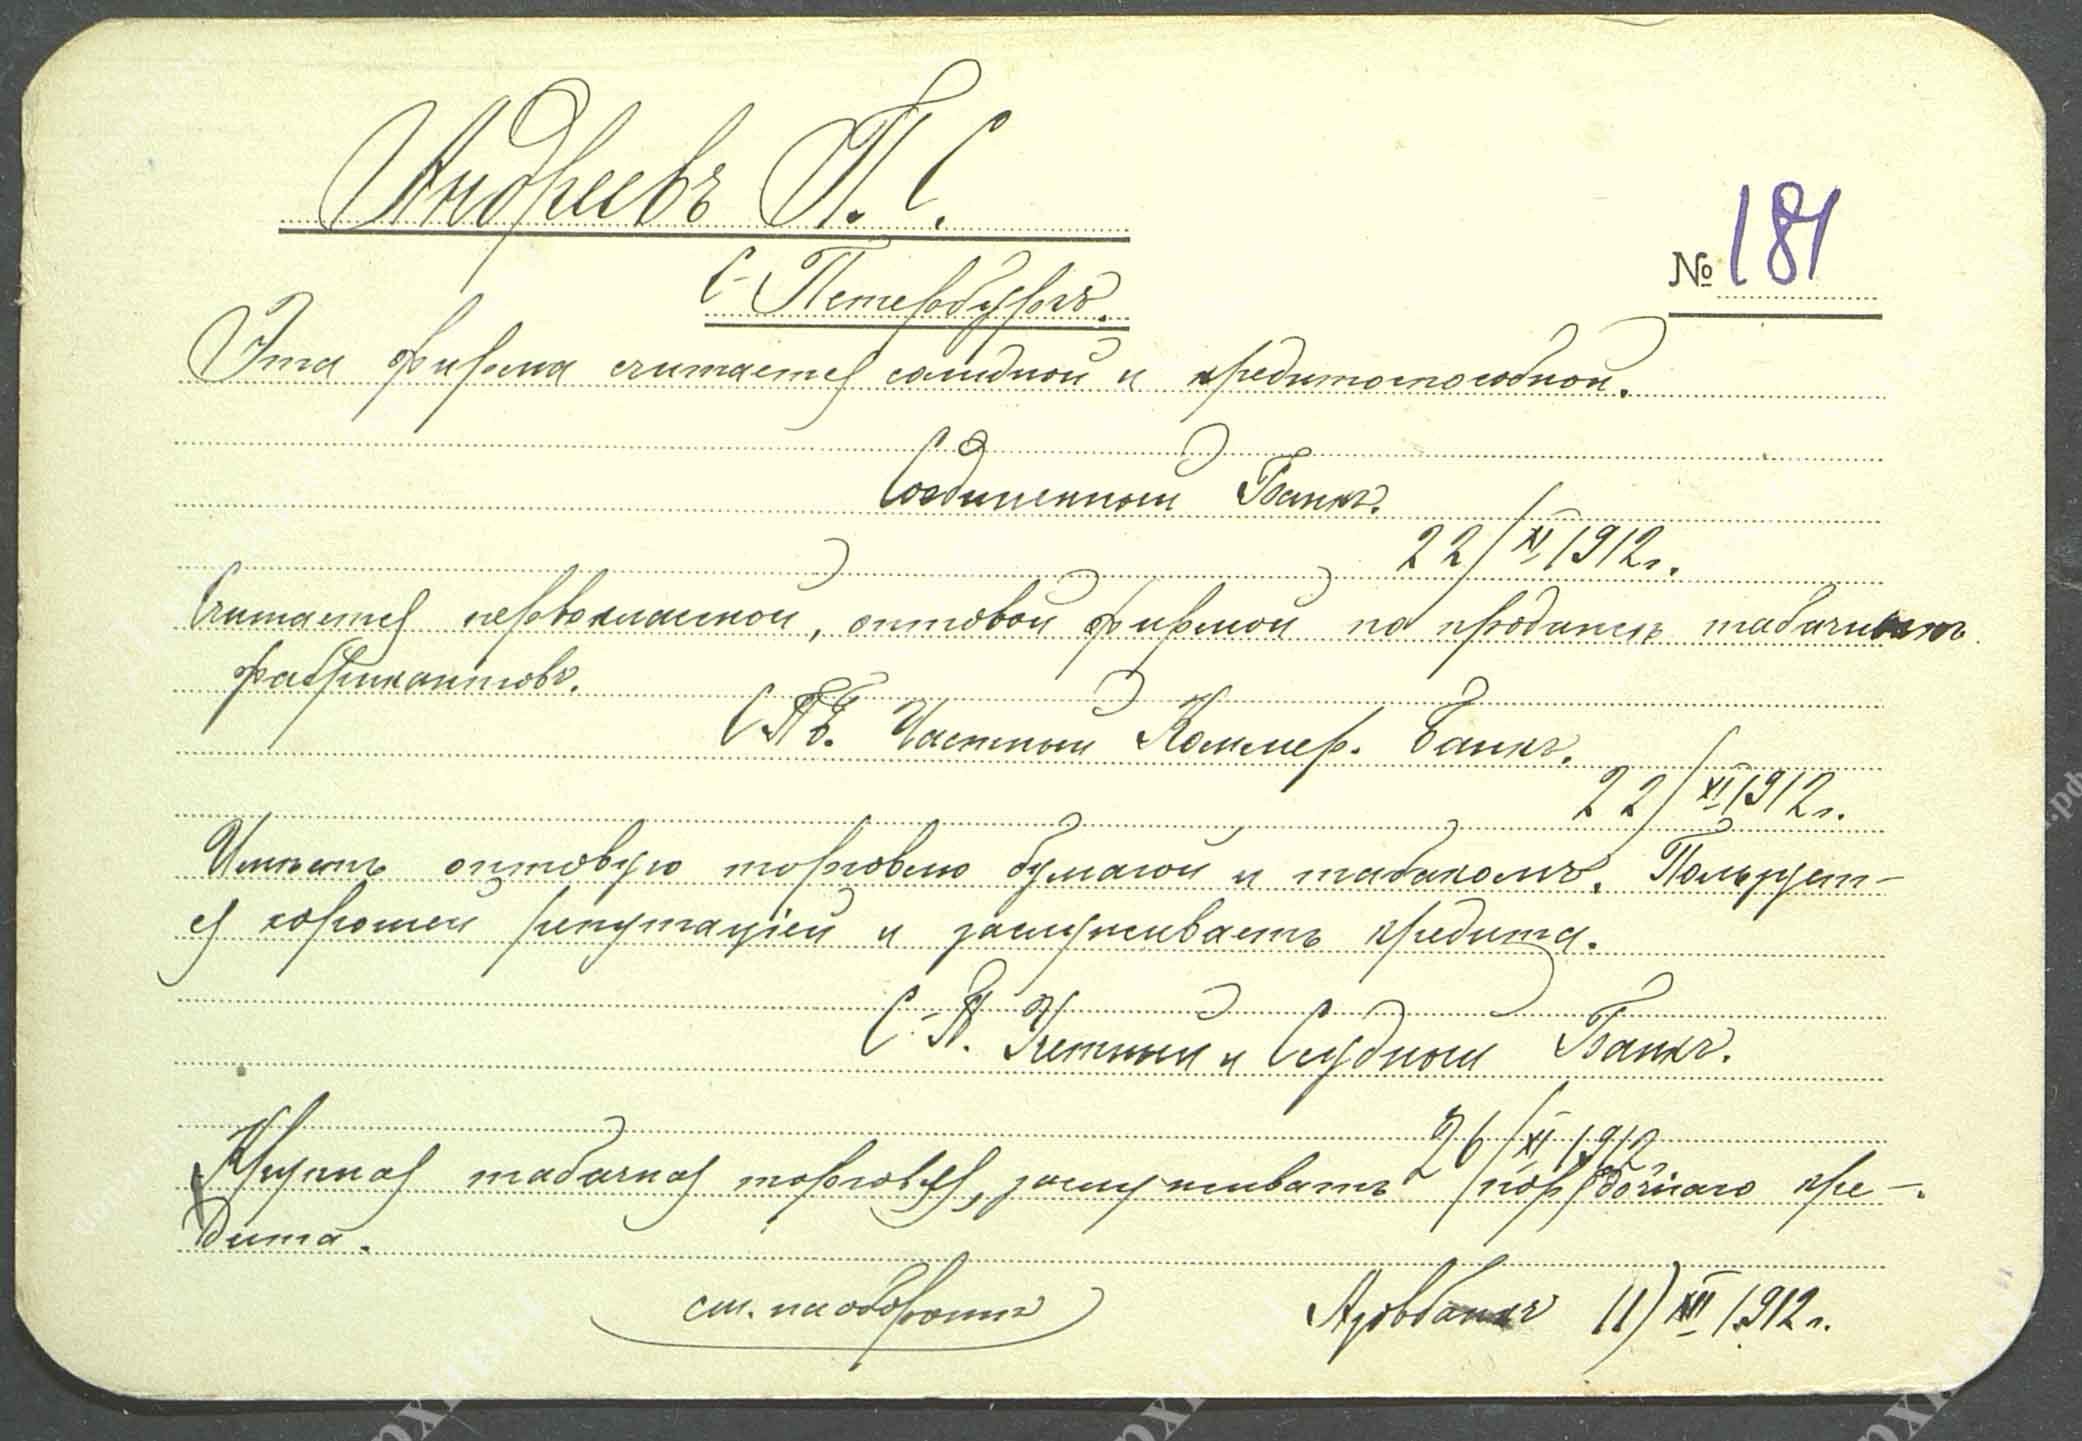 Андреевъ П. С.
С-Петербургъ.
№ 181
Эта фирма считается солидной и кредитоспособной.
Соединенный Банкъ.
22/XI 1912 г.
Считается первоклассной, оптовой фирмой по продажѣ табачныхъ
фабрикантовъ.
СПБ. Частный Коммер. Банкъ.
22/XI 1912 г.
Имѣетъ оптовую торговлю бумагой и табакомъ. Пользует-
ся хорошей репутаціей и заслуживаетъ кредита.
С.-П. Учетный и Ссудный Банкъ.
26/XI 1912
Крупная табачная торговля, заслуживаетъ кре-
дита.
см. на оборотѣ
Азовбанкъ 11/XII 1912 г.